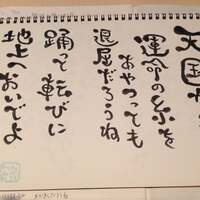 天国
運命の糸を
あやつっても
退屈だろうね
踊って転びに
地上へおいでよ